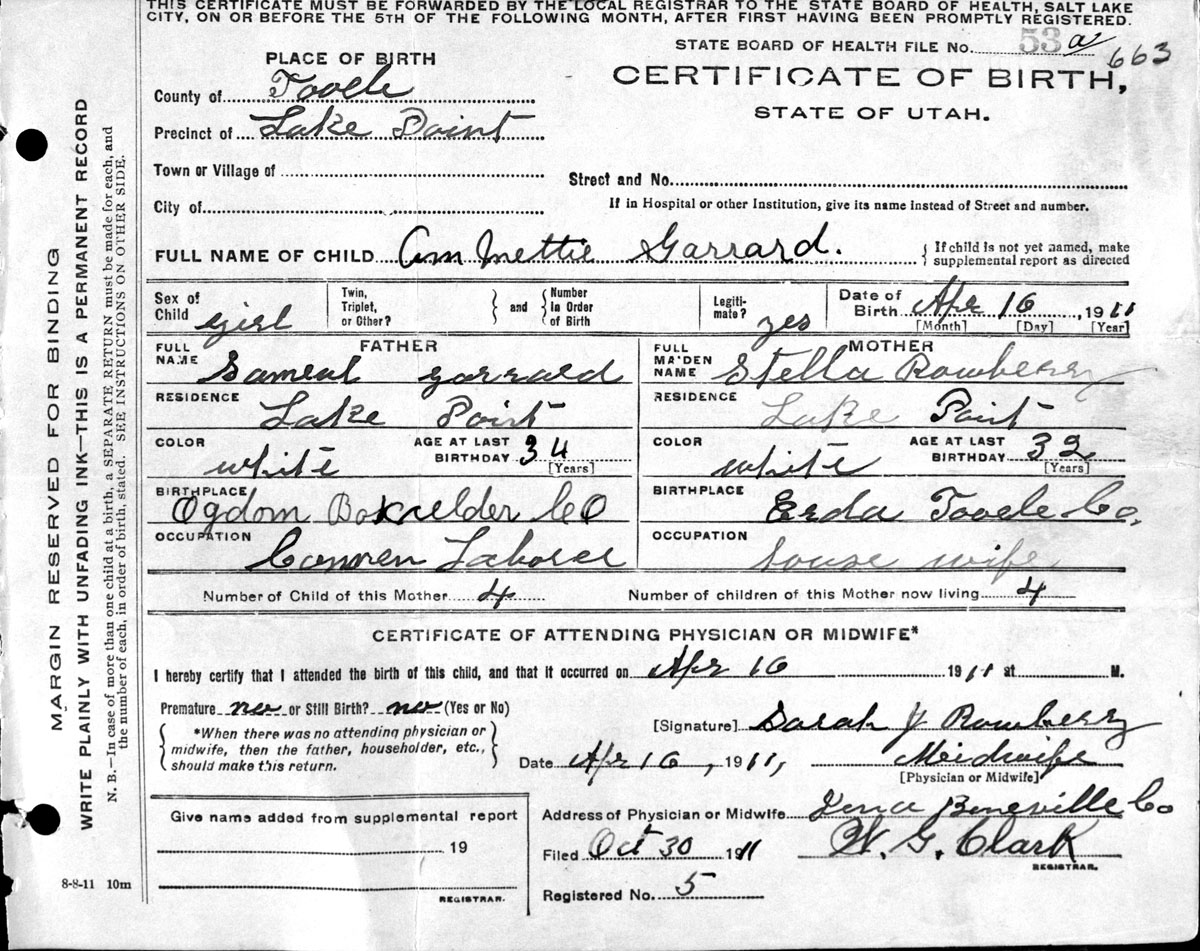 THIS CERTIFICATE MUST BE FORWARDED BY THE LOCAL REGISTRAR TO THE STATE BOARD OF HEALTH, SALT LAKE
CITY, ON OR BEFORE THE 5TH OF THE FOLLOWING MONTH, AFTER FIRST HAVING BEEN PROMPTLY REGISTERED.
STATE BOARD OF HEALTH FILE No. 53 a 663
PLACE OF BIRTH
CERTIFICATE OF BIRTH,
STATE OF UTAH.
County of Tooele
Precinct of Lake Point
Town or Village of
Street and No.
City of
If in Hospital or other Institution, give its name instead of Street and number.
FULL NAME OF CHILD Mettie Garrard.
{ If child is not yet named, make
supplemental report as directed
Sex of Child girl
Twin, Triplet, or Other? } and { Number In Order of Birth
Legiti-mate? yes
Date of Birth Apr 16, 1911
[Month] [Day] [Year]
FATHER
FULL NAME Sameul Garrard
RESIDENCE Lake Point
COLOR white
AGE AT LAST BIRTHDAY 34
[Years]
BIRTHPLACE Ogdom Boxelder CO
OCCUPATION Laborer
MOTHER
FULL MAIDEN NAME Stella Rowberry
RESIDENCE Lake Point
COLOR white
AGE AT LAST BIRTHDAY 32
[Years]
BIRTHPLACE Erda Tooele Co.
OCCUPATION House wife
Number of Child of this Mother 4
Number of children of this Mother now living 4
CERTIFICATE OF ATTENDING PHYSICIAN OR MIDWIFE*
I hereby certify that I attended the birth of this child, and that it occurred on Apr 16 1911 at M.
Premature no or Still Birth? no (Yes or No)
{ *When there was no attending physician or
midwife, then the father, householder, etc.,
should make this return. }
[Signature] Sarah J Rowberry
Date Apr 16, 1911,
Meidwife
[Physician or Midwife]
Address of Physician or Midwife Beneville Co
Filed Oct 30 1911
W. G. Clark
REGISTRAR.
Registered No. 5
Give name added from supplemental report
19
REGISTRAR.
8-8-11 10m
MARGIN RESERVED FOR BINDING
WRITE PLAINLY WITH UNFADING INK—THIS IS A PERMANENT RECORD
N. B.—In case of more than one child at a birth, a SEPARATE RETURN must be made for each, and
the number of each, in order of birth, stated. SEE INSTRUCTIONS ON OTHER SIDE.